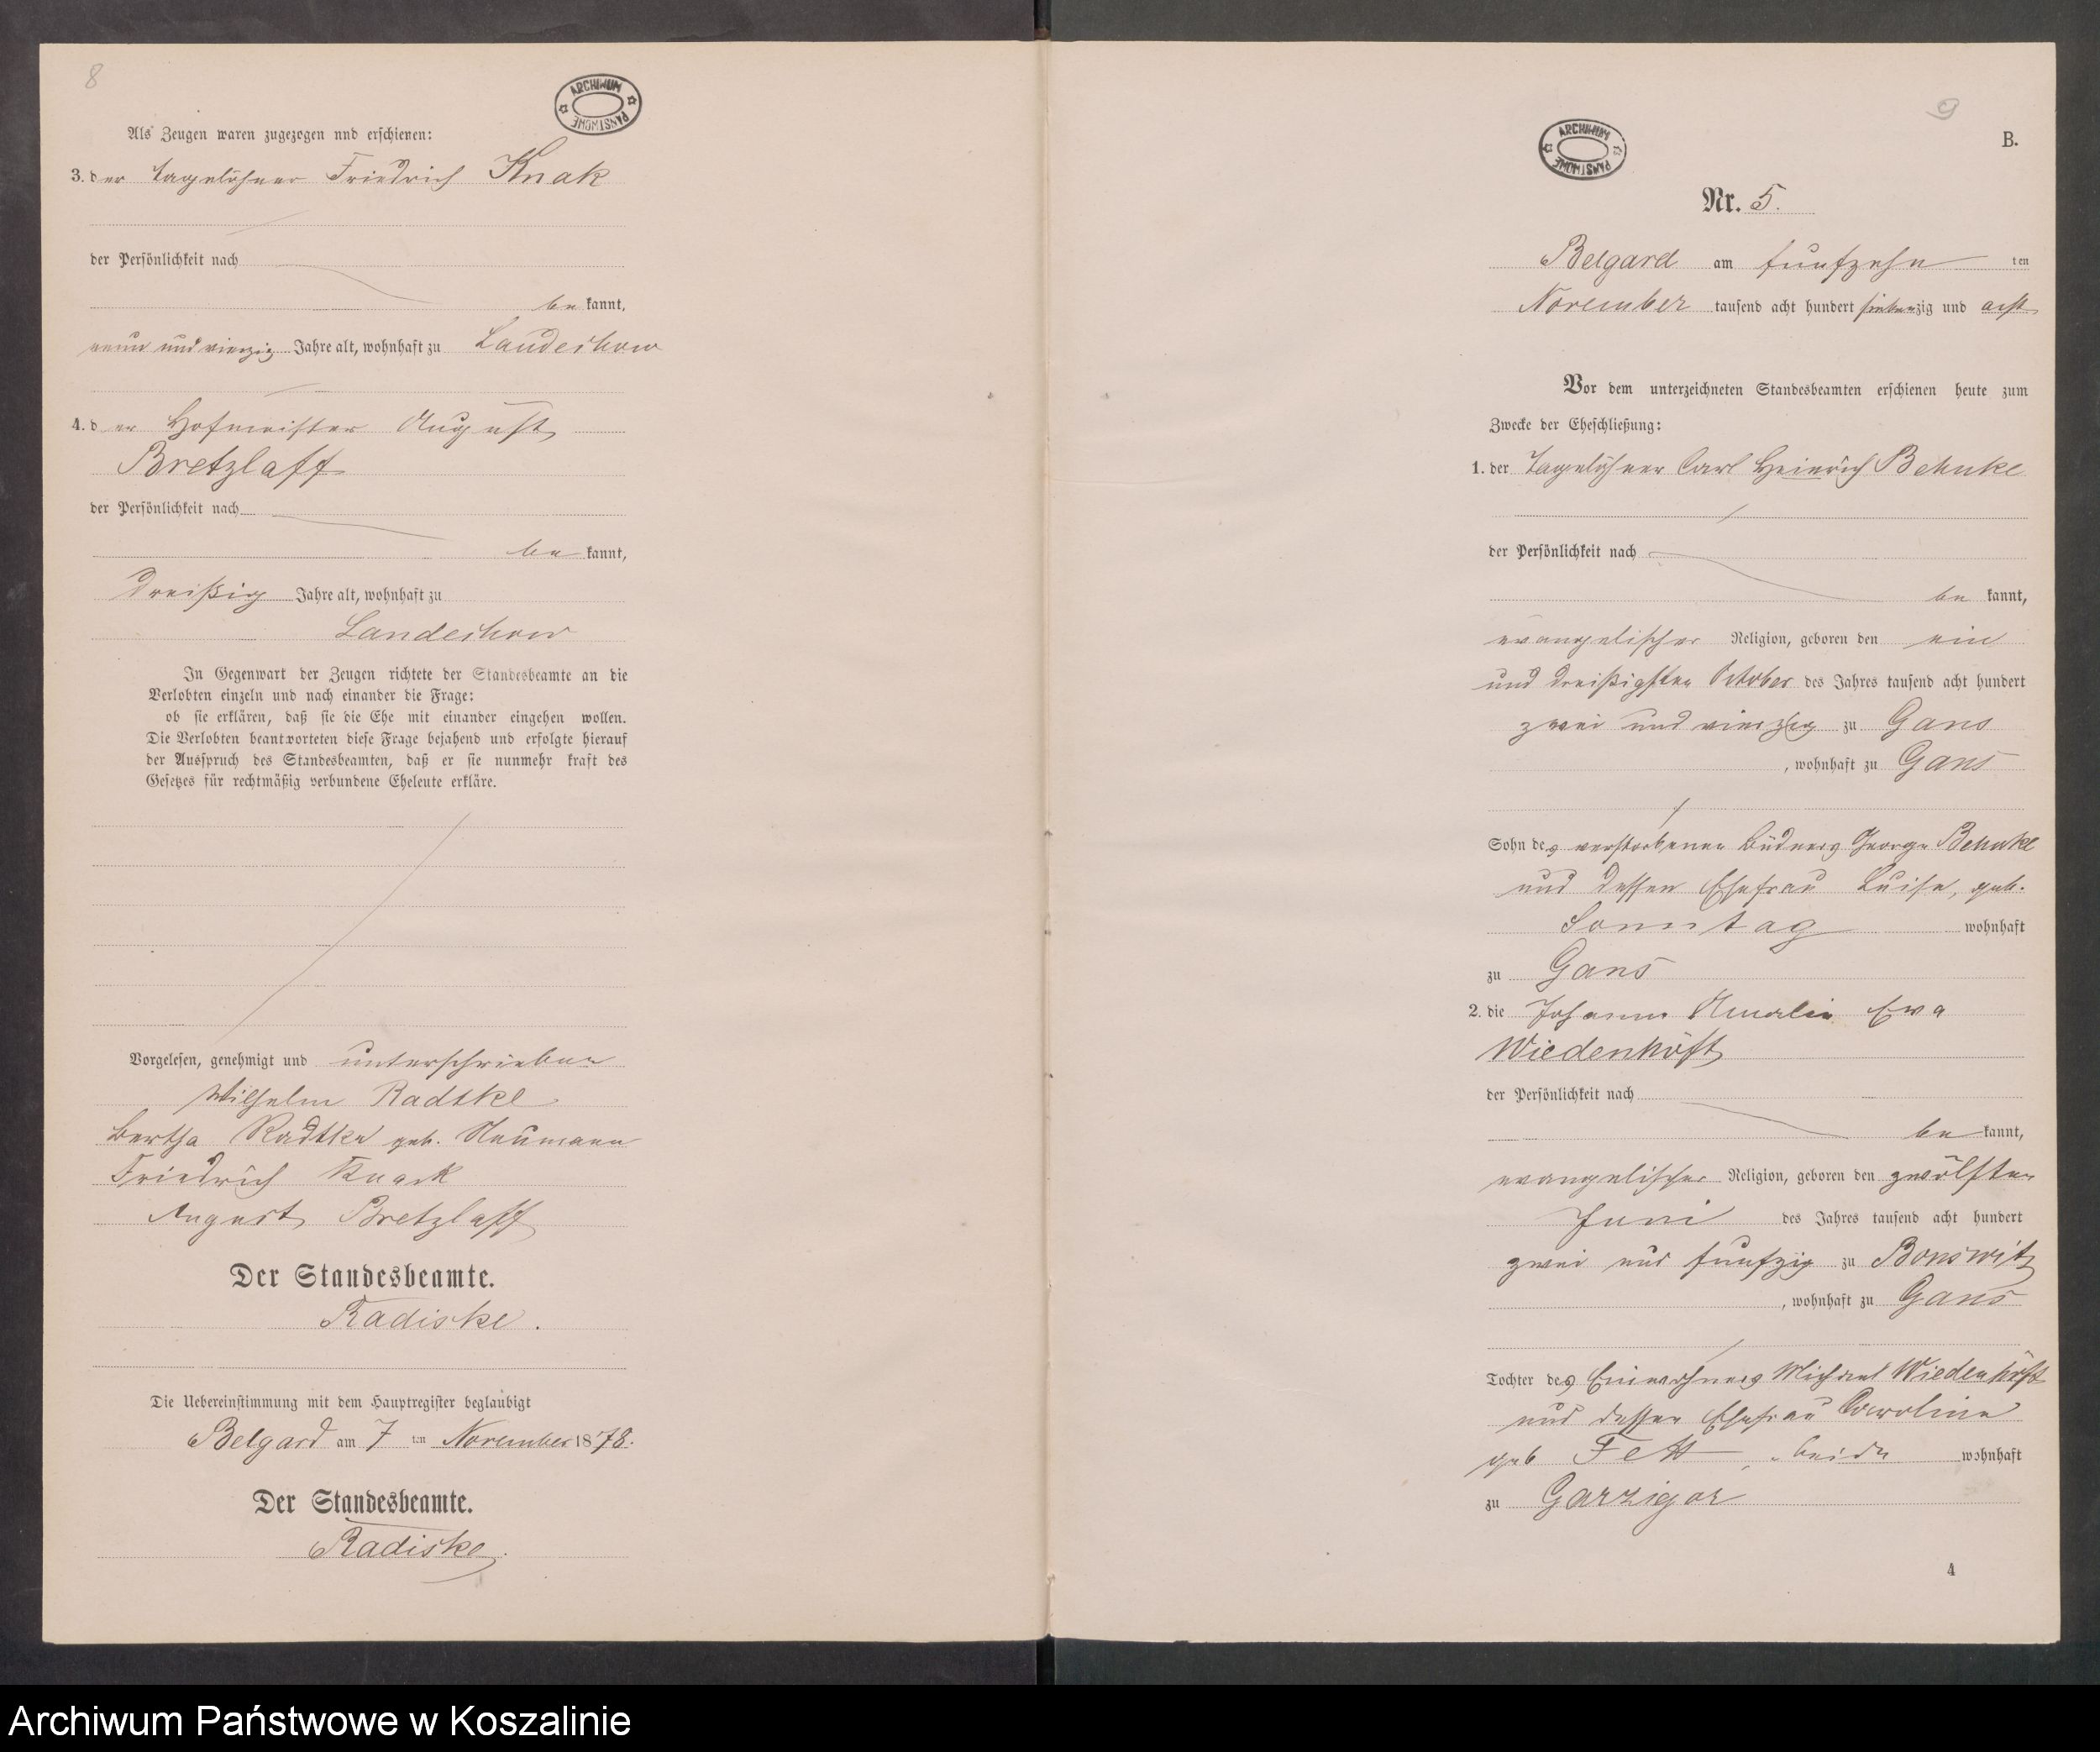 8
ARCHIWUM PAŃSTWOWE
Als Zeugen waren zugezogen und erschienen:
3. der Tagelöhner Friedrich Knak
der Persönlichkeit nach
be kannt,
neun und vierzig Jahre alt, wohnhaft zu Landechow
4. der Hofmeister August
Bretzlaff
der Persönlichkeit nach
be kannt,
dreißig Jahre alt, wohnhaft zu
Landechow
In Gegenwart der Zeugen richtete der Standesbeamte an die
Verlobten einzeln und nach einander die Frage:
ob sie erklären, daß sie die Ehe mit einander eingehen wollen.
Die Verlobten beantworteten diese Frage bejahend und erfolgte hierauf
der Ausspruch des Standesbeamten, daß er sie nunmehr kraft des
Gesetzes für rechtmäßig verbundene Eheleute erkläre.
Vorgelesen, genehmigt und unterschrieben
Wilhelm Radtke
Bertha Radtke geb. Neumann
Friedrich Knack
August Bretzlaff
Der Standesbeamte.
Radiske.
Die Uebereinstimmung mit dem Hauptregister beglaubigt
Belgard am 7 ten November 1878.
Der Standesbeamte.
Radiske.
9
ARCHIWUM PAŃSTWOWE
B.
Nr. 5.
Belgard am funfzehn ten
November tausend acht hundert siebenzig und acht
Vor dem unterzeichneten Standesbeamten erschienen heute zum
Zwecke der Eheschließung:
1. der Tagelöhner Carl Heinrich Behnke
der Persönlichkeit nach
be kannt,
evangelischer Religion, geboren den ein
und dreißigsten October des Jahres tausend acht hundert
zwei und vierzig zu Gans
, wohnhaft zu Gans
Sohn des verstorbenen Büdners George Behnke
und dessen Ehefrau Luise, geb.
Sonntag wohnhaft
zu Gans
2. die Johanne Amalie Ewa
Wiedenhöft
der Persönlichkeit nach
be kannt,
evangelischer Religion, geboren den zwölften
Juni des Jahres tausend acht hundert
zwei und funfzig zu Bonswitz
, wohnhaft zu Gans
Tochter des Einwohners Michael Wiedenhöft
und dessen Ehefrau Caroline
geb Fett, beide wohnhaft
zu Garzigar
4
Archiwum Państwowe w Koszalinie